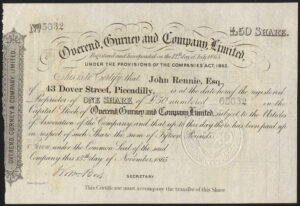 No 5032
£50 SHARE.
Overend, Gurney and Company, Limited,
Registered and Incorporated on the 12th day of July 1865
UNDER THE PROVISIONS OF THE COMPANIES' ACT, 1862.
This is to Certify that John Rennie, Esq.,
43 Dover Street, Picadilly, is at the date hereof the registered
Proprietor of ONE SHARE of £50 numbered in the
Capital Stock of Overend, Gurney and Company, Limited, subject to the Articles
of Association of the Company and that up to this day there has been paid up
in respect of such Share the sum of Fifteen Pounds
Given under the Common Seal of the said
Company this 15th day of November, 1865
SECRETARY
This Certificate must accompany the transfer of this Share
OVEREND, GURNEY & COMPANY, LIMITED